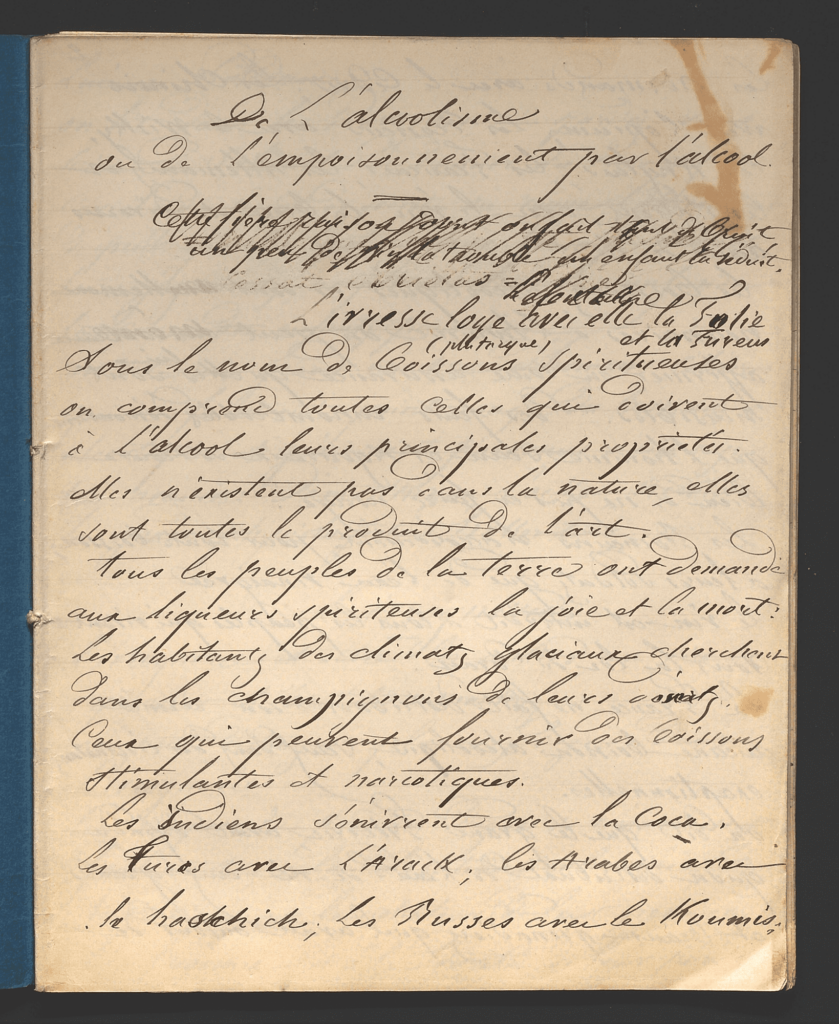 De L'alcoolisme
ou de l'empoisonnement par l'alcool
un enfant la séduit.
L'ivresse loge avec elle la Folie
et la Fureur
(plutarque)
Sous le nom de boissons spiritueuses
on comprend toutes celles qui doivent
à L'alcool leurs principales propriétés.
elles n'éxistent pas dans la nature, elles
sont toutes le produit de l'art.
tous les peuples de la terre ont demandé
aux liqueurs spiriteuses la joie et la mort:
Les habitants des climats glaciaux cherchent
dans les champignons de leurs
Ceux qui peuvent fournir des boissons
stimulantes et narcotiques.
Les indiens s'énivrent avec la Coca.
Les Turcs avec L'Arack, les Arabes avec
le haschich; Les Russes avec le Koumis;